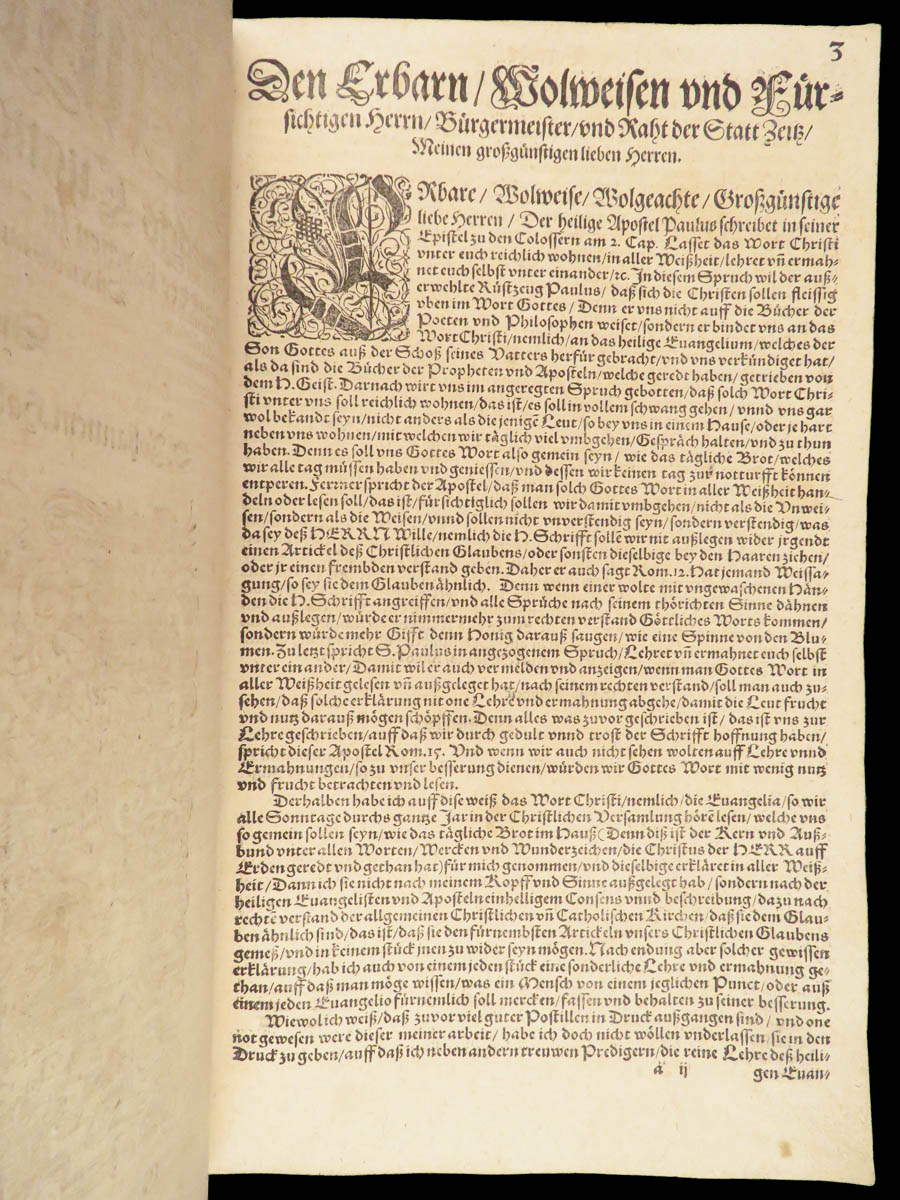 3
Den Erbarn/ Wolweisen vnd Für-
sichtigen Herrn/ Bürgermeister/ vnd Raht der Statt Zeitz/
Meinen großgünstigen lieben Herren.
ERbare/ Wolweise/ Wolgeachte/ Großgünstige
liebe Herren/ Der heilige Apostel Paulus schreibet in seiner
Epistel zu den Colossern am 2. Cap. Lasset das Wort Christi
vnter euch reichlich wohnen/ in aller Weißheit/ lehret vñ ermah-
net euch selbst vnter einander/ ꝛc. In diesem Spruch wil der auß-
erwehlte Rüstzeug Paulus/ daß sich die Christen sollen fleissig
vben im Wort Gottes/ Denn er vns nicht auff die Bücher der
Poeten vnd Philosophen weiset/ sondern er bindet vns an das
Wort Christi/ nemlich/ an das heilige Euangelium/ welches der
Son Gottes auß der Schoß seines Vatters herfür gebracht/ vnd vns verkündiget hat/
als da sind die Bücher der Propheten vnd Aposteln/ welche geredt haben/ getrieben von
dem H. Geist. Darnach wirt vns im angeregten Spruch gebotten/ daß solch Wort Chri-
sti vnter vns soll reichlich wohnen/ das ist/ es soll in vollem schwang gehen/ vnnd vns gar
wol bekandt seyn/ nicht anders als die jenigē Leut/ so bey vns in einem Hause/ oder je hart
neben vns wohnen/ mit welchen wir täglich viel vmbgehen/ Gespräch halten/ vnd zu thun
haben. Denn es soll vns Gottes Wort also gemein seyn/ wie das tägliche Brot/ welches
wir alle tag müssen haben vnd geniessen/ vnd dessen wir keinen tag zur notturfft können
entperen. Ferrner spricht der Apostel/ daß man solch Gottes Wort in aller Weißheit han-
deln oder lesen soll/ das ist/ fürsichtiglich sollen wir damit vmbgehen/ nicht als die Vnwei-
sen/ sondern als die Weisen/ vnnd sollen nicht vnverstendig seyn/ sondern verstendig/ was
da sey deß HERRN Wille/ nemlich die H. Schrifft sollē wir nit außlegen wider jrgendt
einen Artickel deß Christlichen Glaubens/ oder sonsten dieselbige bey den Haaren ziehen/
oder jr einen frembden verstand geben. Daher er auch sagt Rom. 12. Hat jemand Weissa-
gung/ so sey sie dem Glauben ähnlich. Denn wenn einer wolte mit vngewaschenen Hän-
den die H. Schrifft angreiffen/ vnd alle Sprüche nach seinem thörichten Sinne dähnen
vnd außlegen/ würde er nimmermehr zum rechten verstand Göttliches Worts kommen/
sondern würde mehr Gifft denn Honig darauß saugen/ wie eine Spinne von den Blu-
men. Zu letzt spricht S. Paulus in angezogenem Spruch/ Lehret vñ ermahnet euch selbst
vnter einander/ Damit wil er auch vermelden vnd anzeigen/ wenn man Gottes Wort in
aller Weißheit gelesen vñ außgeleget hat/ nach seinem rechten verstand/ soll man auch zu-
sehen/ daß solche erklärung nit one Lehre vnd ermahnung abgehe/ damit die Leut frucht
vnd nutz darauß mögen schöpffen. Denn alles was zuvor geschrieben ist/ das ist vns zur
Lehre geschrieben/ auff daß wir durch gedult vnnd trost der Schrifft hoffnung haben/
spricht dieser Apostel Rom. 15. Vnd wenn wir auch nicht sehen wolten auff Lehre vnnd
Ermahnungen/ so zu vnser besserung dienen/ würden wir Gottes Wort mit wenig nutz
vnd frucht betrachten vnd lesen.
Derhalben habe ich auff dise weiß das Wort Christi/ nemlich/ die Euangelia/ so wir
alle Sonntage durchs gantze Jar in der Christlichen Versamlung hörē lesen/ welche vns
so gemein sollen seyn/ wie das tägliche Brot im Hauß (Denn diß ist der Kern vnd Auß-
bund vnter allen Worten/ Wercken vnd Wunderzeichen/ die Christus der HERR auff
Erden geredt vnd gethan hat) für mich genommen/ vnd dieselbige erkläret in aller Weiß-
heit/ Dann ich sie nicht nach meinem Kopff vnd Sinne außgelegt hab/ sondern nach der
heiligen Euangelisten vnd Aposteln einhelligem Consens vnnd beschreibung/ dazu nach
rechtē verstand der allgemeinen Christlichen vñ Catholischen Kirchen/ daß sie dem Glau-
ben ähnlich sind/ das ist/ daß sie den fürnembsten Artickeln vnsers Christlichen Glaubens
gemeß/ vnd in keinem stück jnen zu wider seyn mögen. Nach endung aber solcher gewissen
erklärung/ hab ich auch von einem jeden stück eine sonderliche Lehre vnd ermahnung ge-
than/ auff daß man möge wissen/ was ein Mensch von einem jeglichen Punct/ oder auß
einem jeden Euangelio fürnemlich soll mercken/ fassen vnd behalten zu seiner besserung.
Wiewol ich weiß/ daß zuvor viel guter Postillen in Druck außgangen sind/ vnd one
not gewesen were dieser meiner arbeit/ habe ich doch nicht wöllen vnderlassen/ sie in den
Druck zu geben/ auff daß ich neben andern treuwen Predigern/ die reine Lehre deß heili-
a ij gen Euan-